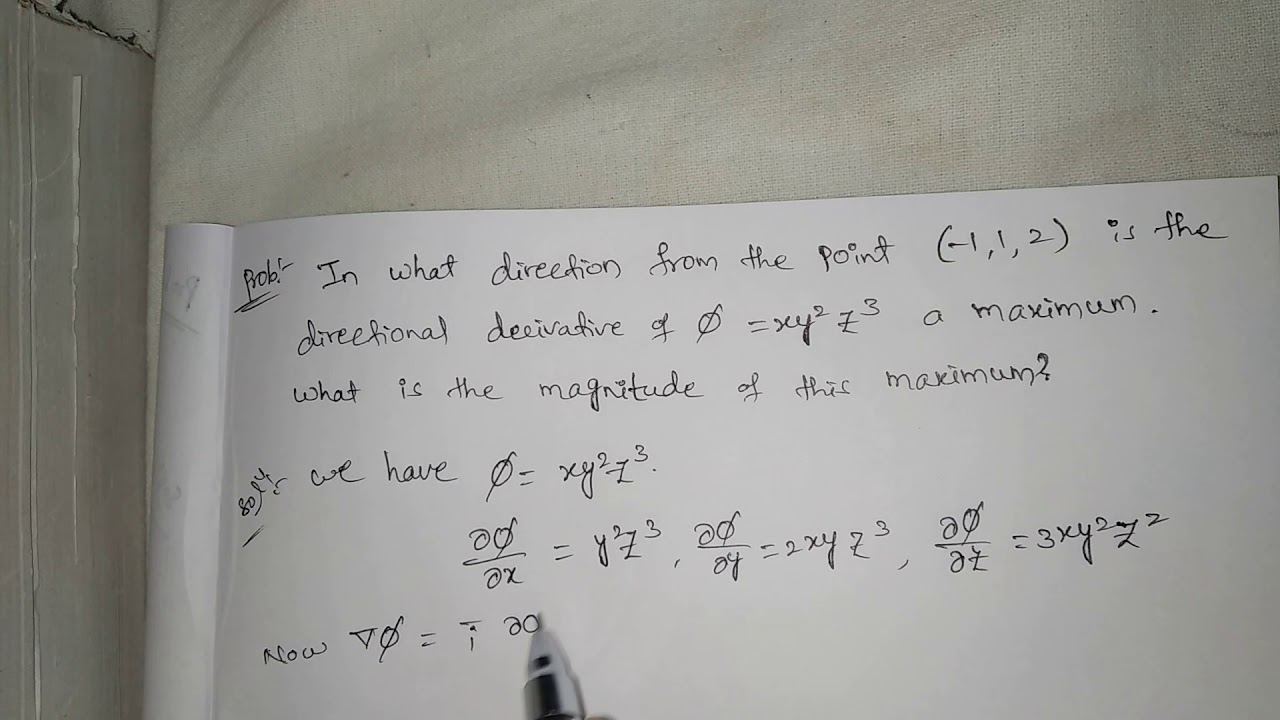 Prob:- In what direction from the point (-1, 1, 2) is the
directional derivative of ∅ = xy² z³ a maximum.
what is the magnitude of this maximum?
Solⁿ:- we have ∅ = xy²z³.
∂∅/∂x = y²z³, ∂∅/∂y = 2xy z³, ∂∅/∂z = 3xy²z²
Now ∇∅ = i̅ ∂